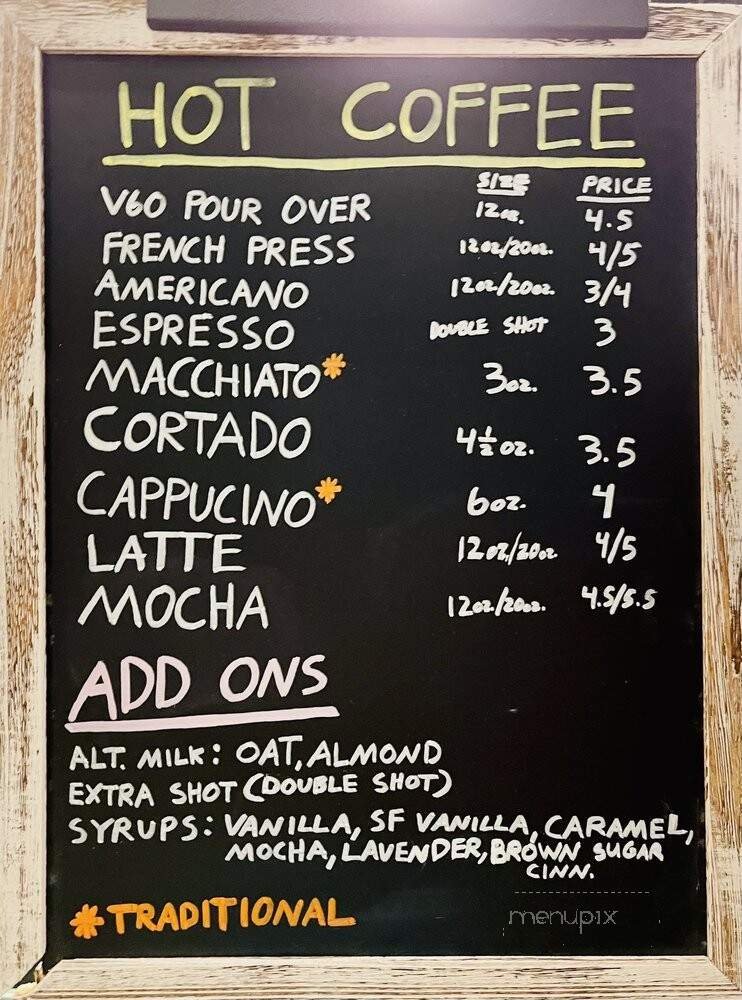 HOT COFFEE
SIZE PRICE
V60 POUR OVER 12oz. 4.5
FRENCH PRESS 12oz/20oz. 4/5
AMERICANO 12oz/20oz. 3/4
ESPRESSO DOUBLE SHOT 3
MACCHIATO* 3oz. 3.5
CORTADO 4½oz. 3.5
CAPPUCINO* 6oz. 4
LATTE 12oz/20oz. 4/5
MOCHA 12oz/20oz. 4.5/5.5
ADD ONS
ALT. MILK: OAT, ALMOND
EXTRA SHOT (DOUBLE SHOT)
SYRUPS: VANILLA, SF VANILLA, CARAMEL,
MOCHA, LAVENDER, BROWN SUGAR
CINN.
*TRADITIONAL
menupix